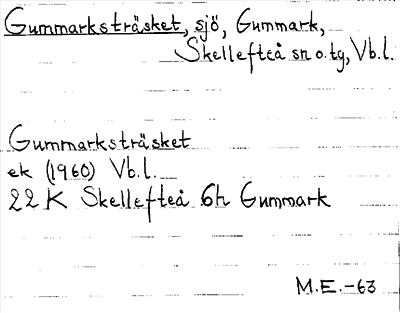 Gummarksträsket, sjö, Gummark,
Skellefteå sn o. tg, Vb.l.
Gummarksträsket
ek (1960) Vb.l.
22 K Skellefteå 6h Gummark
M.E.-63